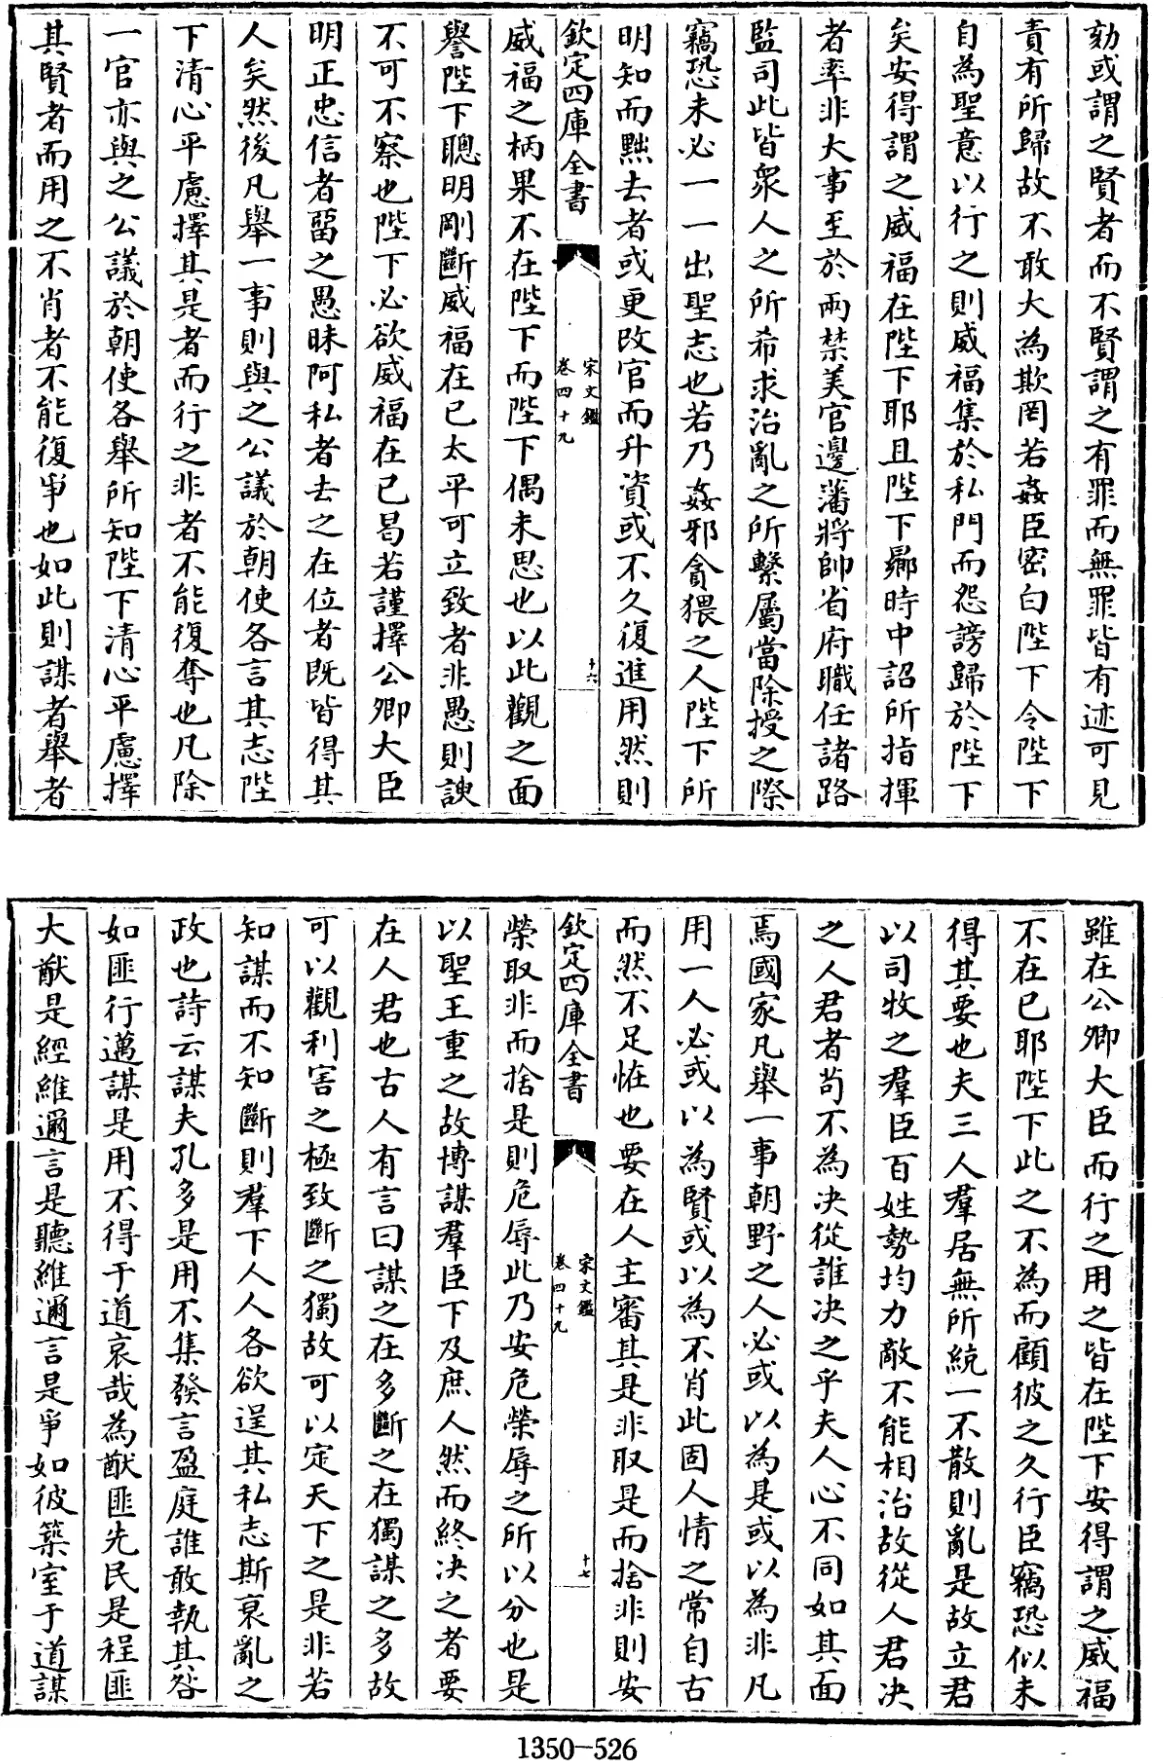 劾或謂之賢者而不賢謂之有罪而無罪皆有迹可見
責有所歸故不敢大為欺罔若姦臣密白陛下令陛下
自為聖意以行之則威福集於私門而怨謗歸於陛下
矣安得謂之威福在陛下耶且陛下曏時中詔所指揮
者率非大事至於兩禁美官邊藩將帥省府職任諸路
監司此皆衆人之所希求治亂之所繫屬當除授之際
竊恐未必一一出聖志也若乃姦邪貪猥之人陛下所
明知而黜去者或更改官而升資或不久復進用然則
欽定四庫全書
宋文鑑
卷四十九
十六
威福之柄果不在陛下而陛下偶未思也以此觀之面
譽陛下聰明剛斷威福在已太平可立致者非愚則諛
不可不察也陛下必欲威福在已曷若謹擇公卿大臣
明正忠信者留之愚昧阿私者去之在位者既皆得其
人矣然後凡舉一事則與之公議於朝使各言其志陛
下清心平慮擇其是者而行之非者不能復奪也凡除
一官亦與之公議於朝使各舉所知陛下清心平慮擇
其賢者而用之不肖者不能復爭也如此則謀者舉者
雖在公卿大臣而行之用之皆在陛下安得謂之威福
不在已耶陛下此之不為而顧彼之久行臣竊恐似未
得其要也夫三人羣居無所統一不散則亂是故立君
以司牧之羣臣百姓勢均力敵不能相治故從人君決
之人君者苟不為决從誰决之乎夫人心不同如其面
焉國家凡舉一事朝野之人必或以為是或以為非凡
用一人必或以為賢或以為不肖此固人情之常自古
而然不足怪也要在人主審其是非取是而捨非則安
欽定四庫全書
宋文鑑
卷四十九
十七
榮取非而捨是則危辱此乃安危榮辱之所以分也是
以聖王重之故博謀羣臣下及庶人然而終决之者要
在人君也古人有言曰謀之在多斷之在獨謀之多故
可以觀利害之極致斷之獨故可以定天下之是非若
知謀而不知斷則羣下人人各欲逞其私志斯衰亂之
政也詩云謀夫孔多是用不集發言盈庭誰敢執其咎
如匪行邁謀是用不得于道哀哉為猷匪先民是程匪
大猷是經維邇言是聽維邇言是爭如彼築室于道謀
1350-526